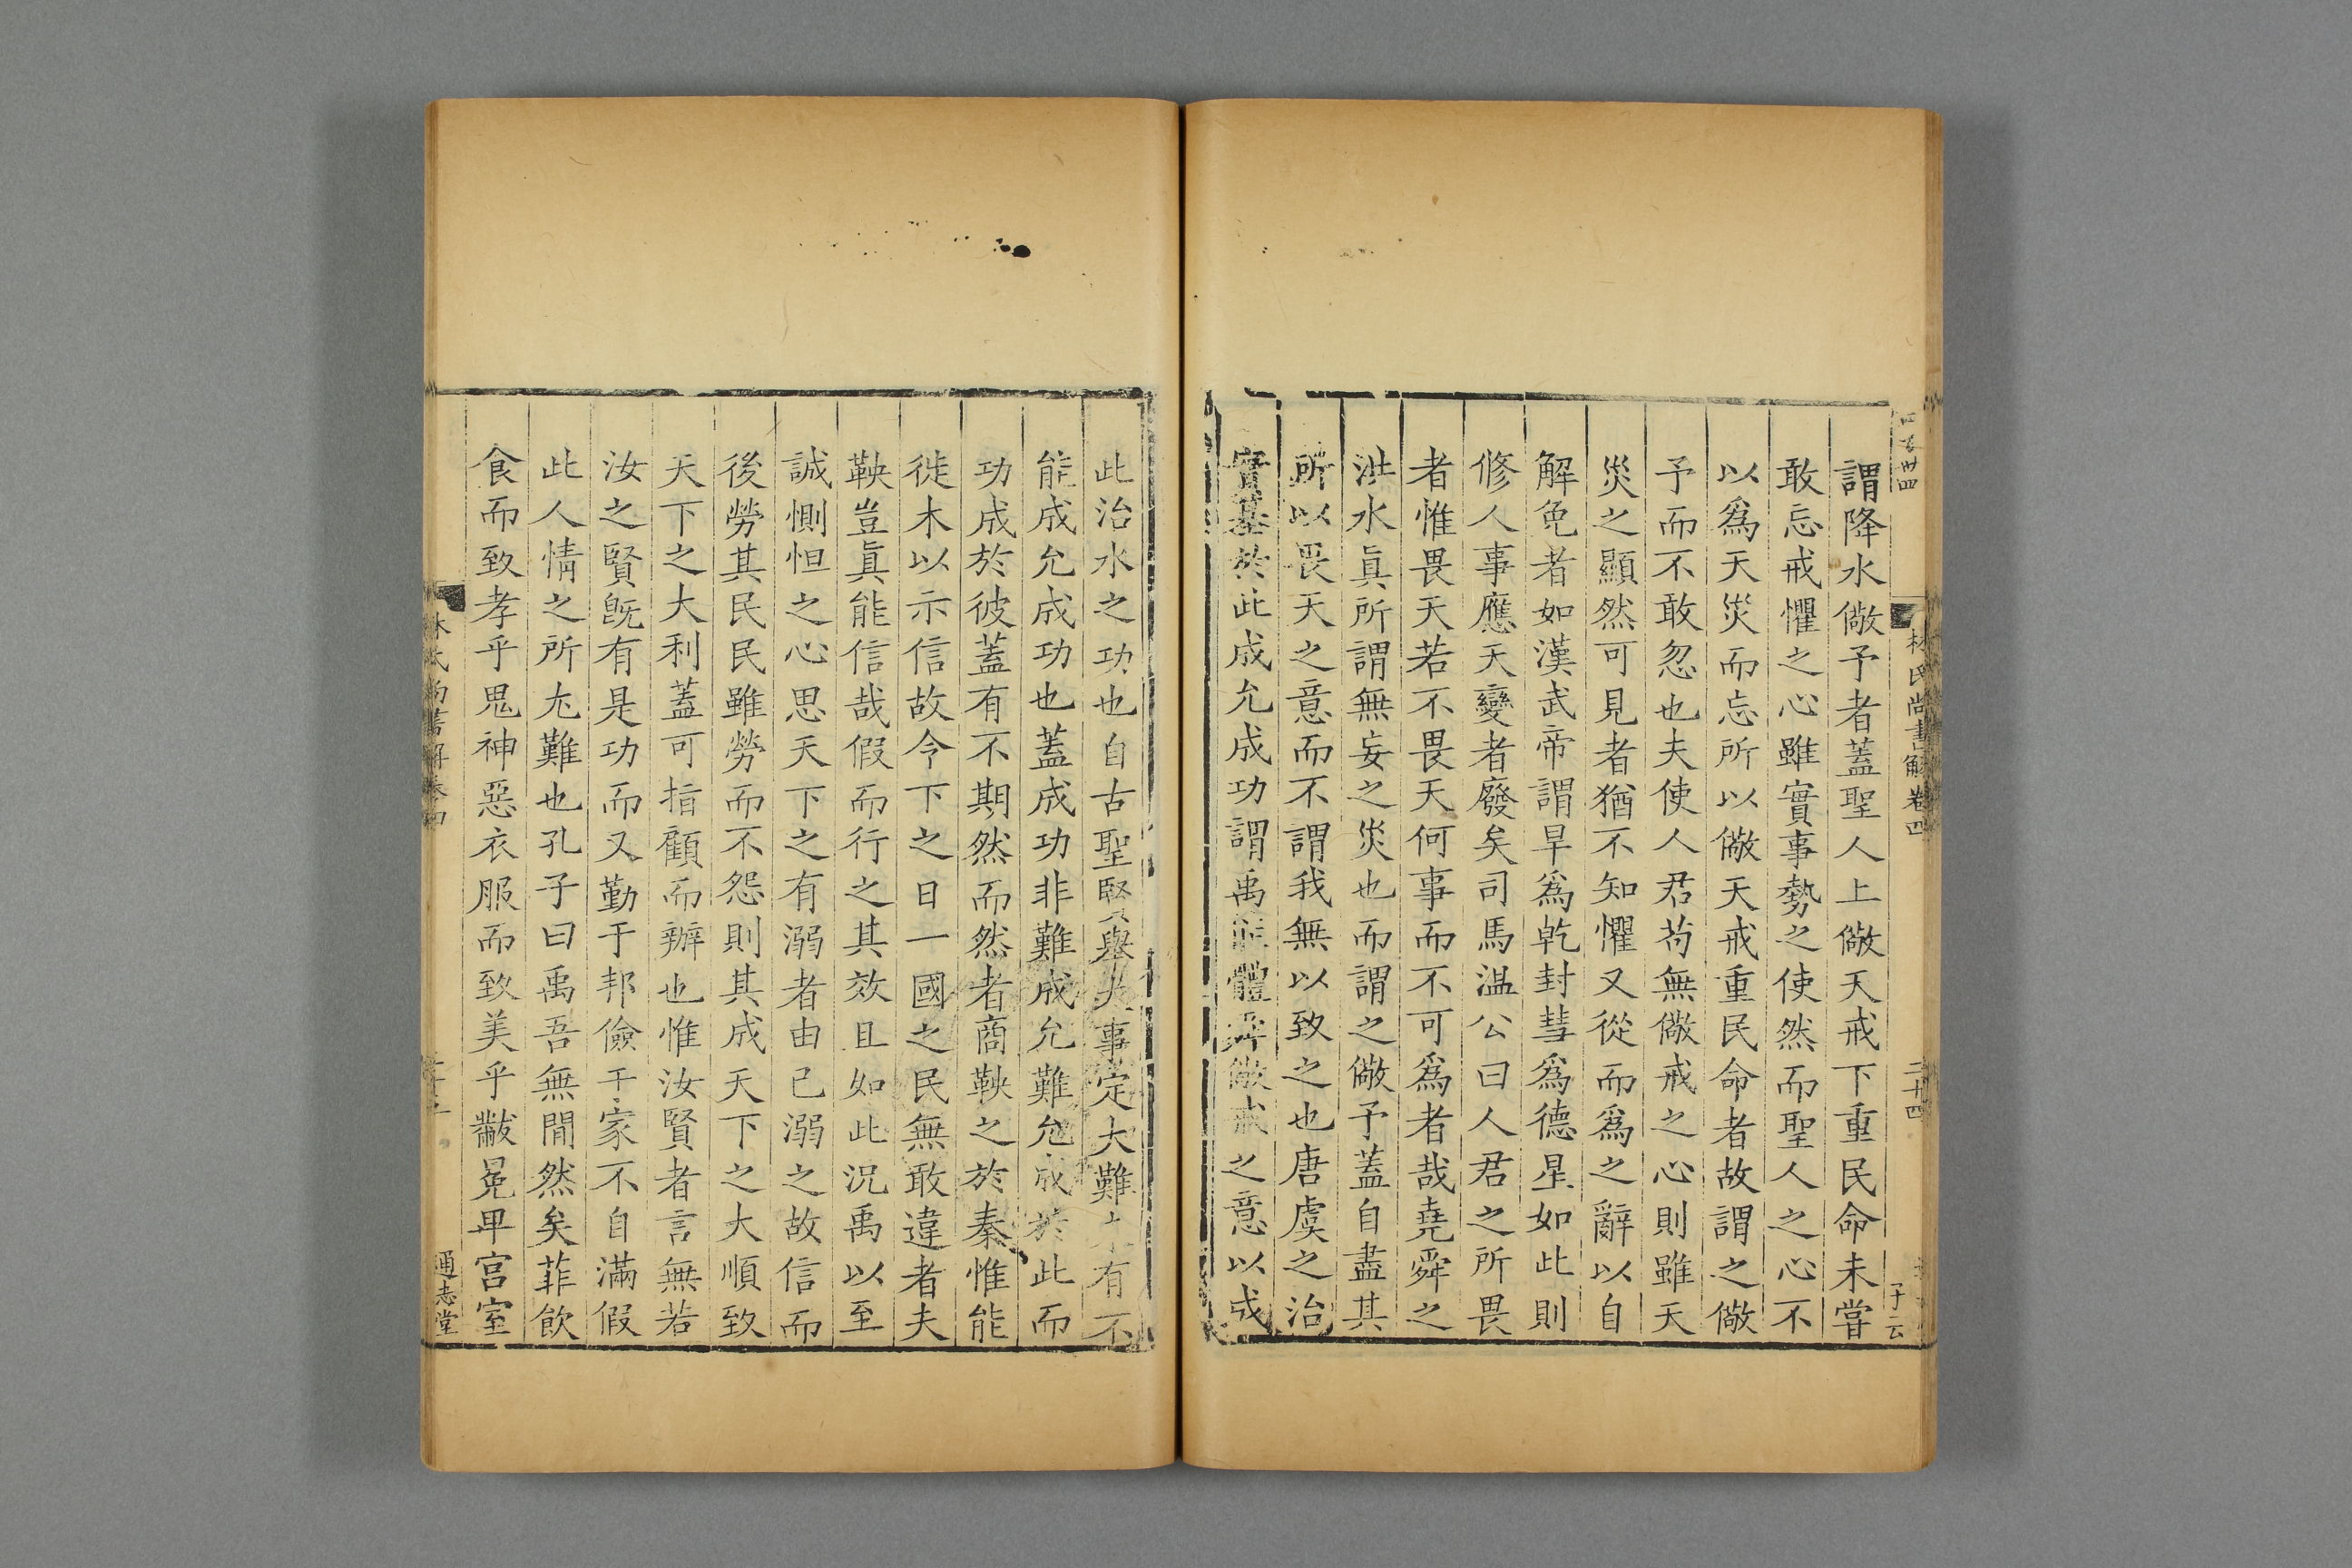 謂降水儆予者蓋聖人上儆天戒下重民命未嘗
敢忘戒懼之心雖實事勢之使然而聖人之心不
以爲天災而忘所以儆天戒重民命者故謂之儆
予而不敢忽也夫使人君苟無儆戒之心則雖天
災之顯然可見者猶不知懼又從而爲之辭以自
解免者如漢武帝謂旱爲乾封彗爲德星如此則
修人事應天變者廢矣司馬温公曰人君之所畏
者惟畏天若不畏天何事而不可爲者哉堯舜之
洪水眞所謂無妄之災也而謂之儆予蓋自盡其
所以畏天之意而不謂我無以致之也唐虞之治
實基於此成允成功謂禹體舜儆戒之意以成
林氏尚書解卷四
二十四
子云
此治水之功也自古聖賢舉大事定大難未有不
能成允成功也蓋成功非難成允難允成於此而
功成於彼蓋有不期然而然者商鞅之於秦惟能
徙木以示信故令下之日一國之民無敢違者夫
鞅豈眞能信哉假而行之其效且如此況禹以至
誠惻怛之心思天下之有溺者由己溺之故信而
後勞其民民雖勞而不怨則其成天下之大順致
天下之大利蓋可指顧而辦也惟汝賢者言無若
汝之賢旣有是功而又勤于邦儉于家不自滿假
此人情之所尢難也孔子曰禹吾無間然矣菲飮
食而致孝乎鬼神惡衣服而致美乎黻冕卑宫室
林氏尚書解卷四
通志堂